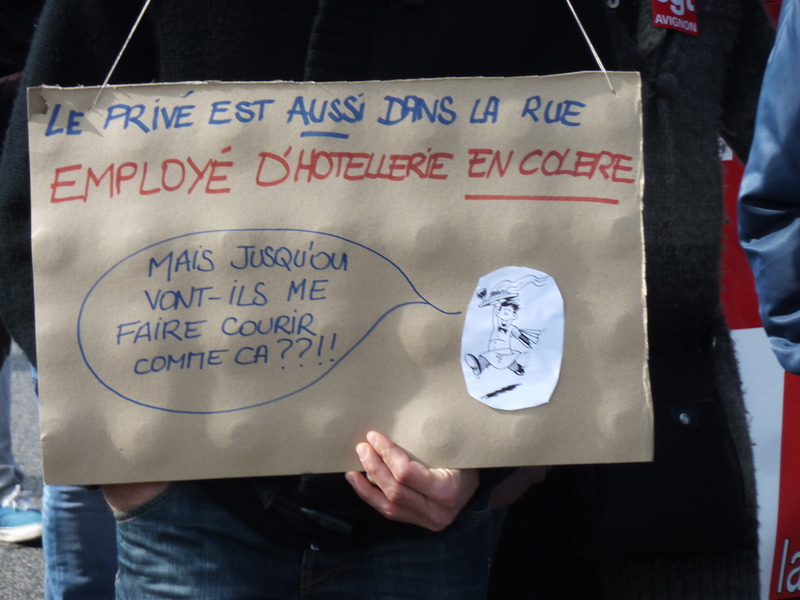 cgt
AVIGNON
LE PRIVÉ EST AUSSI DANS LA RUE
EMPLOYÉ D'HOTELLERIE EN COLERE
MAIS JUSQU'OU
VONT-ILS ME
FAIRE COURIR
COMME CA ??!!
la